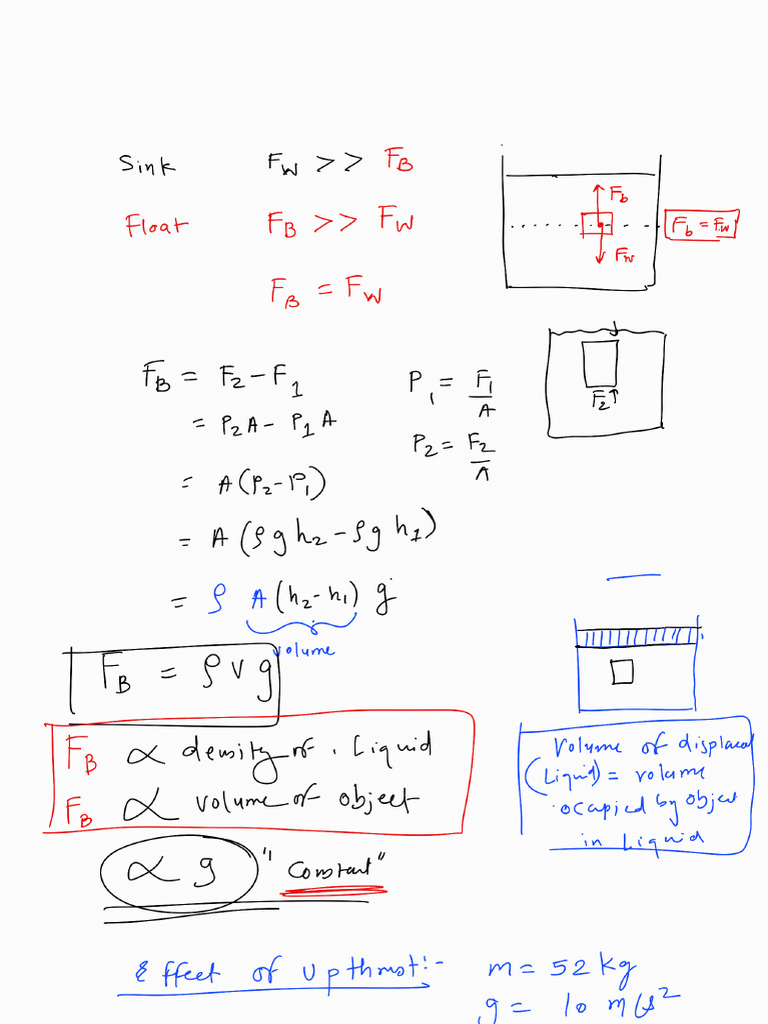 Sink F_W >> F_B
Float F_B >> F_W
F_B = F_W
F_b
F_b = F_W
F_W
F_B = F_2 - F_1
= P_2 A - P_1 A
= A (P_2 - P_1)
= A (ρ g h_2 - ρ g h_1)
= ρ A (h_2 - h_1) g
volume
P_1 = F_1 / A
P_2 = F_2 / A
F_2↑
F_B = ρ v g
F_B ∝ density of Liquid
F_B ∝ volume of object
∝ g "Constant"
Volume of displaced
(Liquid) = volume
ocapied by object
in Liquid
Effect of Upthrust:-
m = 52 kg
g = 10 m/s²